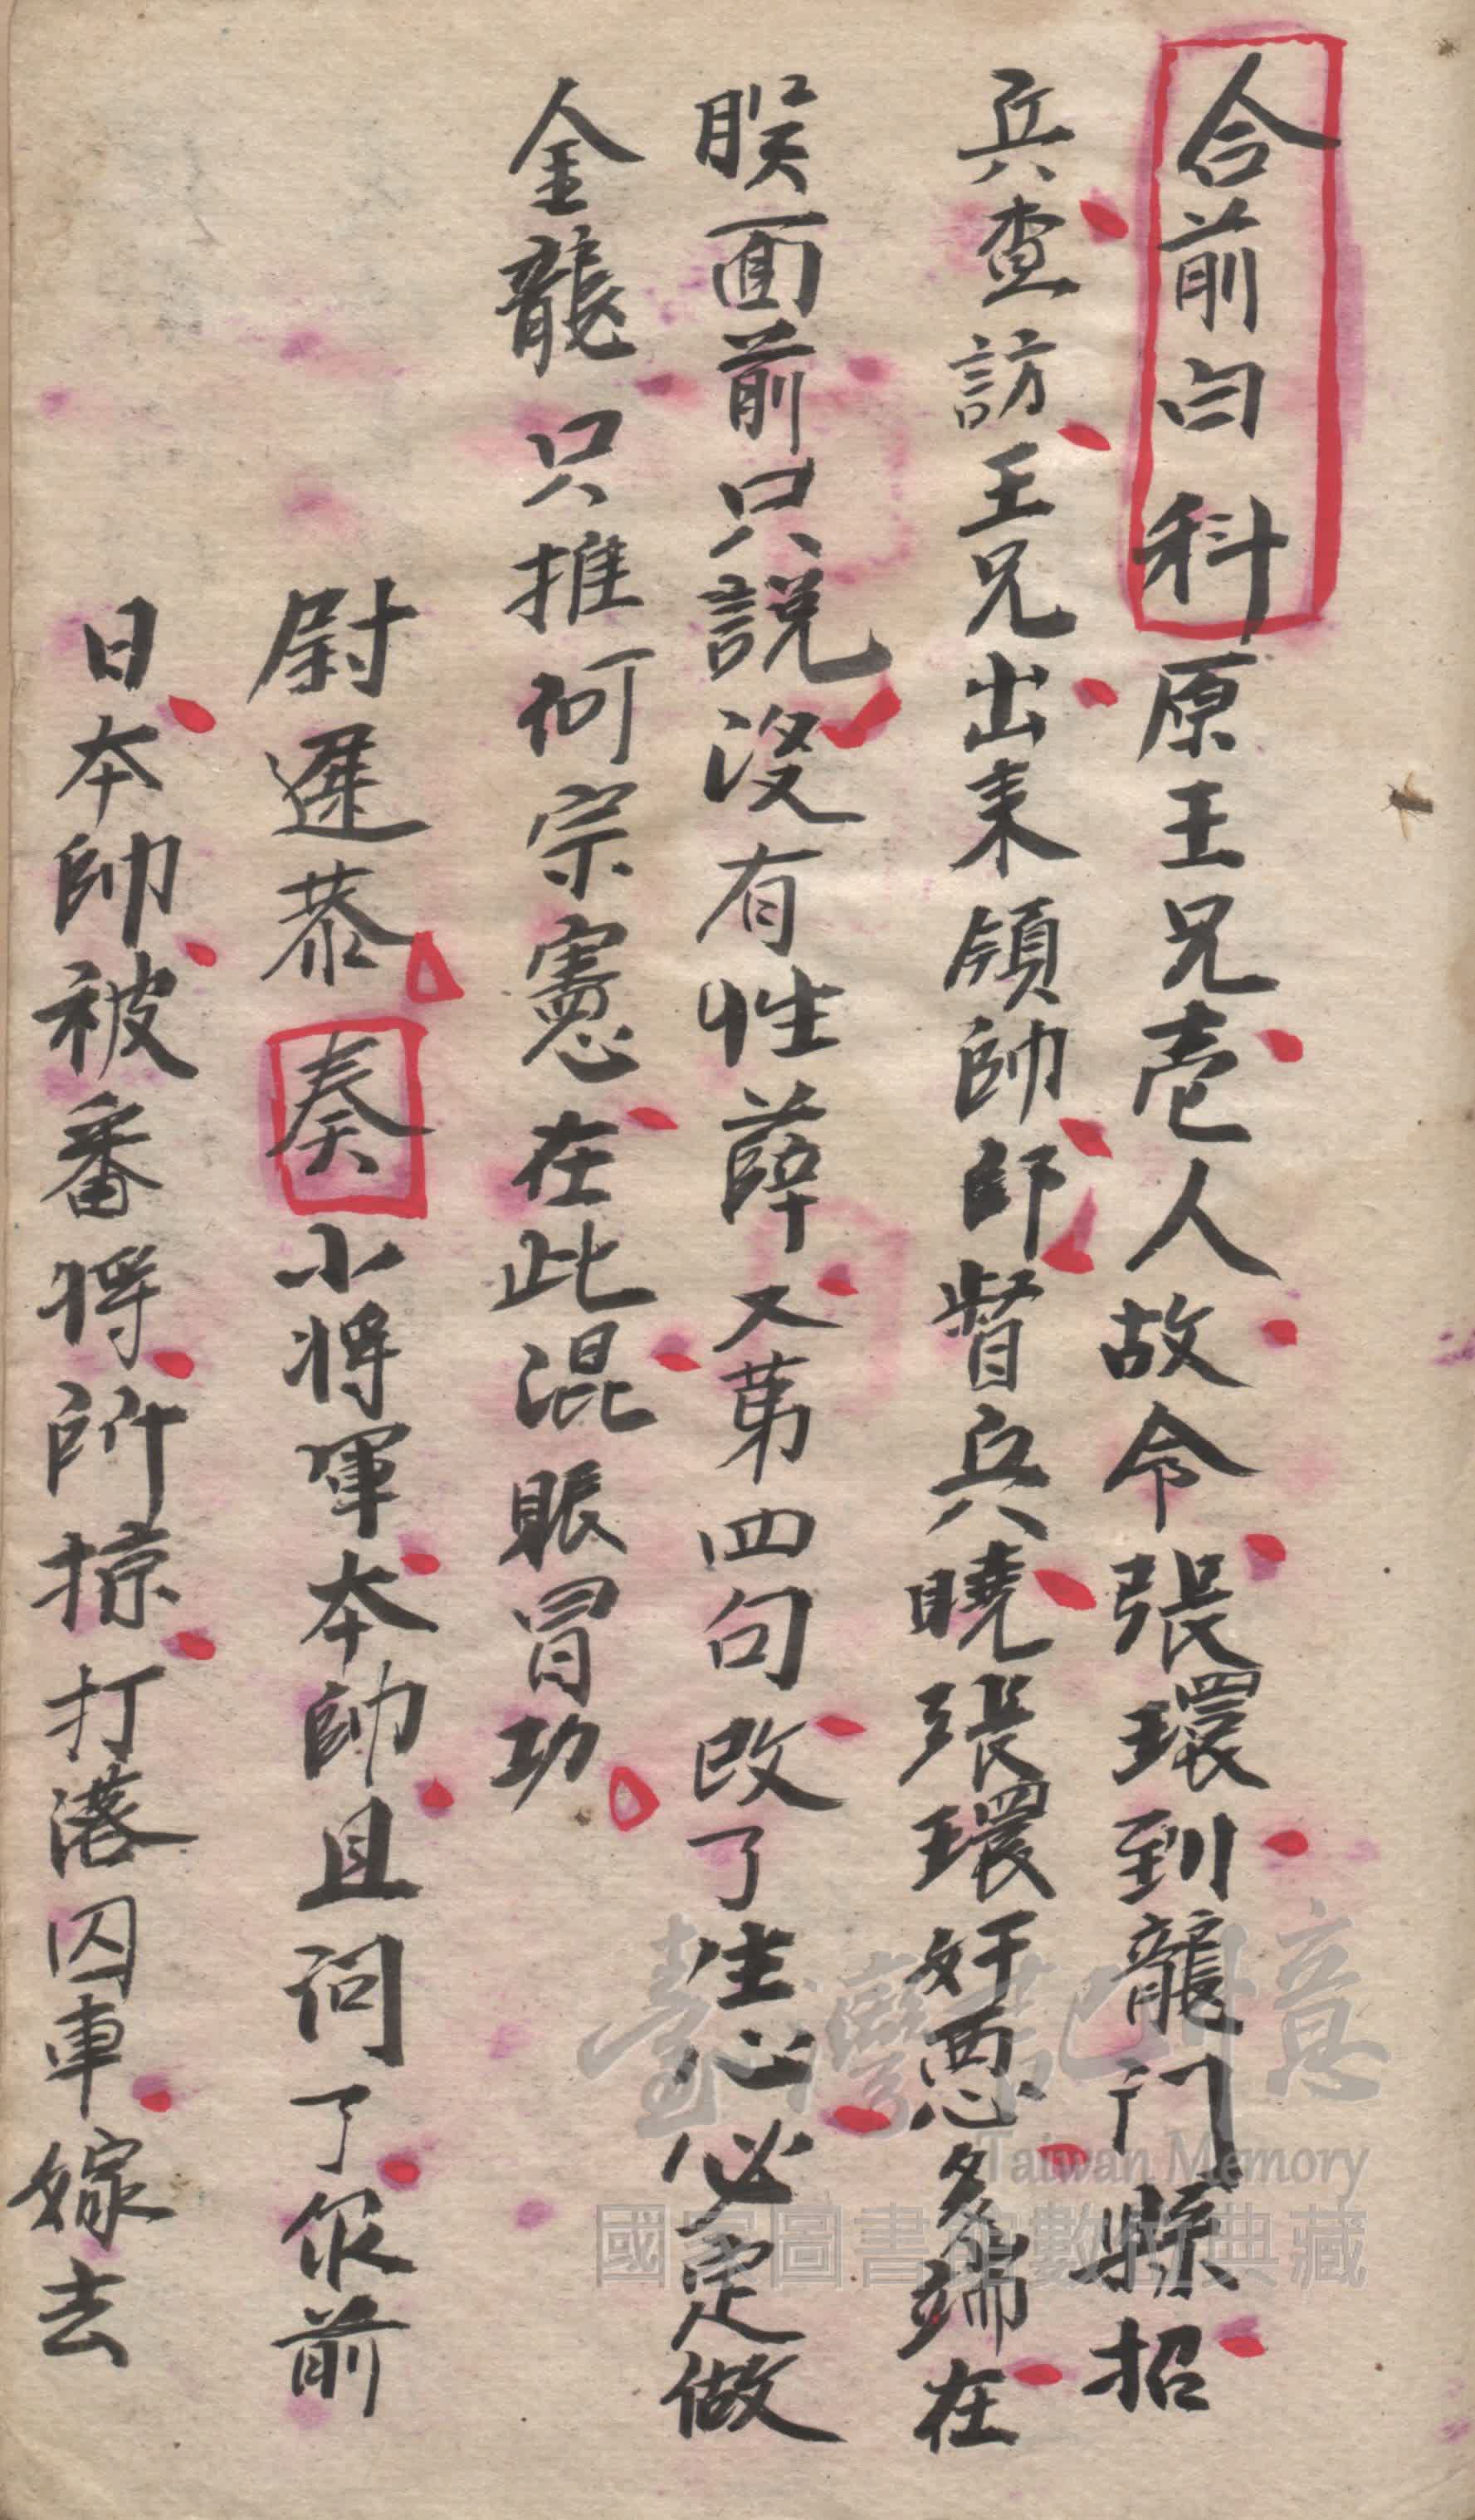 合前白科原王兄壱人故令張環到龍门縣招
兵查訪王兄出来領帥師督兵曉張環奸惡多端在
朕面前只說没有性薛又苐四句改了生心必定做
金龍只推何宗憲在此混賬冒功
尉遲恭奏小將軍本帥且问了你前
日本帥被番將所掠打落囚車嫁去
臺灣記憶
Taiwan Memory
國家圖書館數位典藏